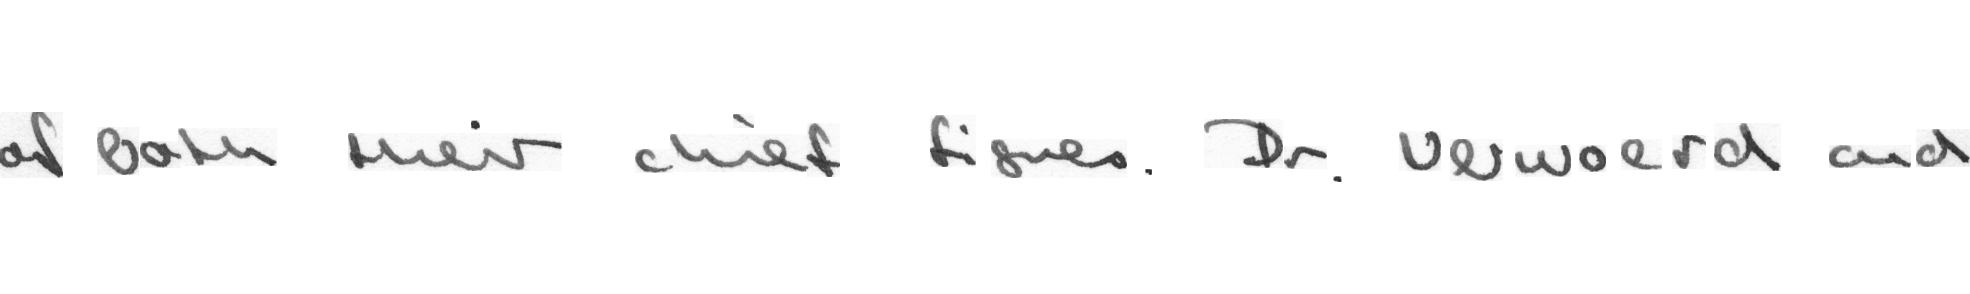 of both their chief figures. Dr. Verwoerd and